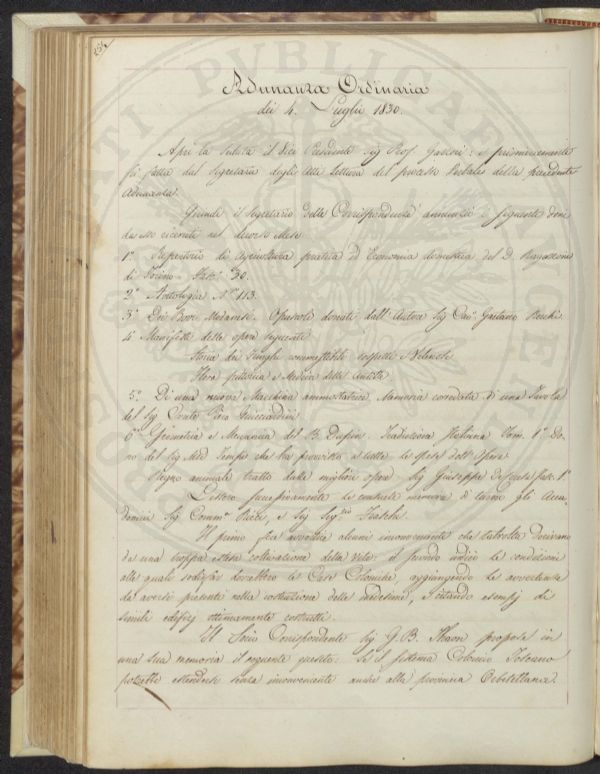 256
Adunanza Ordinaria
dei 4. Luglio 1830.
Aprì la Seduta il Vice Presidente Sig Prof. Gazzeri: e primieramente
fu fatta dal Segretario degli Atti Lettura del processo Verbale della precedente
Adunanza.
Quindi il Segretario delle Corrispondenze annunziò i seguenti doni
da esso ricevuti nel decorso Mese.
1º Repertorio di Agricoltura pratica ed Economia domestica del D. Ragazzoni
di Torino Fasc. 30.
2º Antologia Nº 113.
3º Dei Bovi Modanesi. Opuscoli donati dall' Autore Sig Cav. Gaetano
4º Manifesti delle opere seguenti
Storia dei Funghi commestibili sospetti e Velenosi
Flora pittorica e Medica delle Antille
5º Di una nuova Macchina ammostatrice. Memoria corredata di una Tavola
del Sig Conte Piero Guicciardini
6º Geometria e Meccanica del B. Dupin. Traduzione Italiana Tom. 1º Do-
no del Sig che ha provvisto a tutte le spese dell' Opera
Regno animale tratto dalle migliori opere Sig Giuseppe Fasc. 1º
Lessero le consuete memorie di turno gli Acca-
demici Sig Comm. Ricci, e Sig Sig. Paschi.
Il primo fece avvertire alcuni inconvenienti che talvolta derivano
da una troppa estesa coltivazione della Vite: il secondo indicò le condizioni
alle quali sodisfar dovrebbero le Case Coloniche, aggiungendo le avvertenze
da aversi presenti nella costruzione delle medesime, e citando esempj di
simili edifizj ottimamente costrutti.
Il Socio Corrispondente Sig G. B. Thaon propose in
una sua memoria il seguente quesito: Se il Sistema Colonico Toscano
potrebbe estendersi senza inconvenienti anche alla provincia Orbetellana.